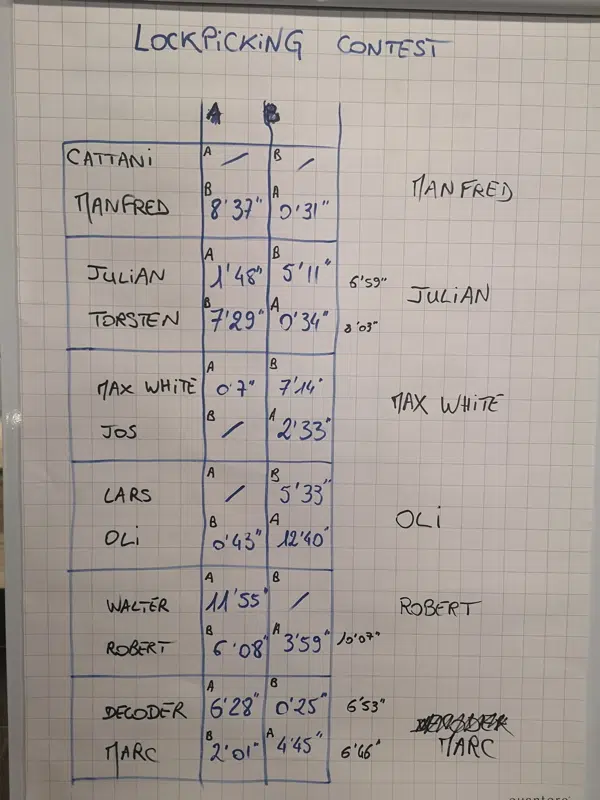 LOCKPICKING CONTEST
A B
CATTANI A / B /
MANFRED B 8'37" A 0'31" MANFRED
JULIAN A 1'48" B 5'11" 6'59" JULIAN
TORSTEN B 7'29" A 0'34" 8'03"
MAX WHITE A 0'7" B 7'14" MAX WHITE
JOS B / A 2'33"
LARS A / B 5'33"
OLI B 0'43" A 12'40" OLI
WALTER A 11'55" B / ROBERT
ROBERT B 6'08" A 3'59" 10'07"
DECODER A 6'28" B 0'25" 6'53" DECODER
MARC B 2'01" A 4'45" 6'46" MARC